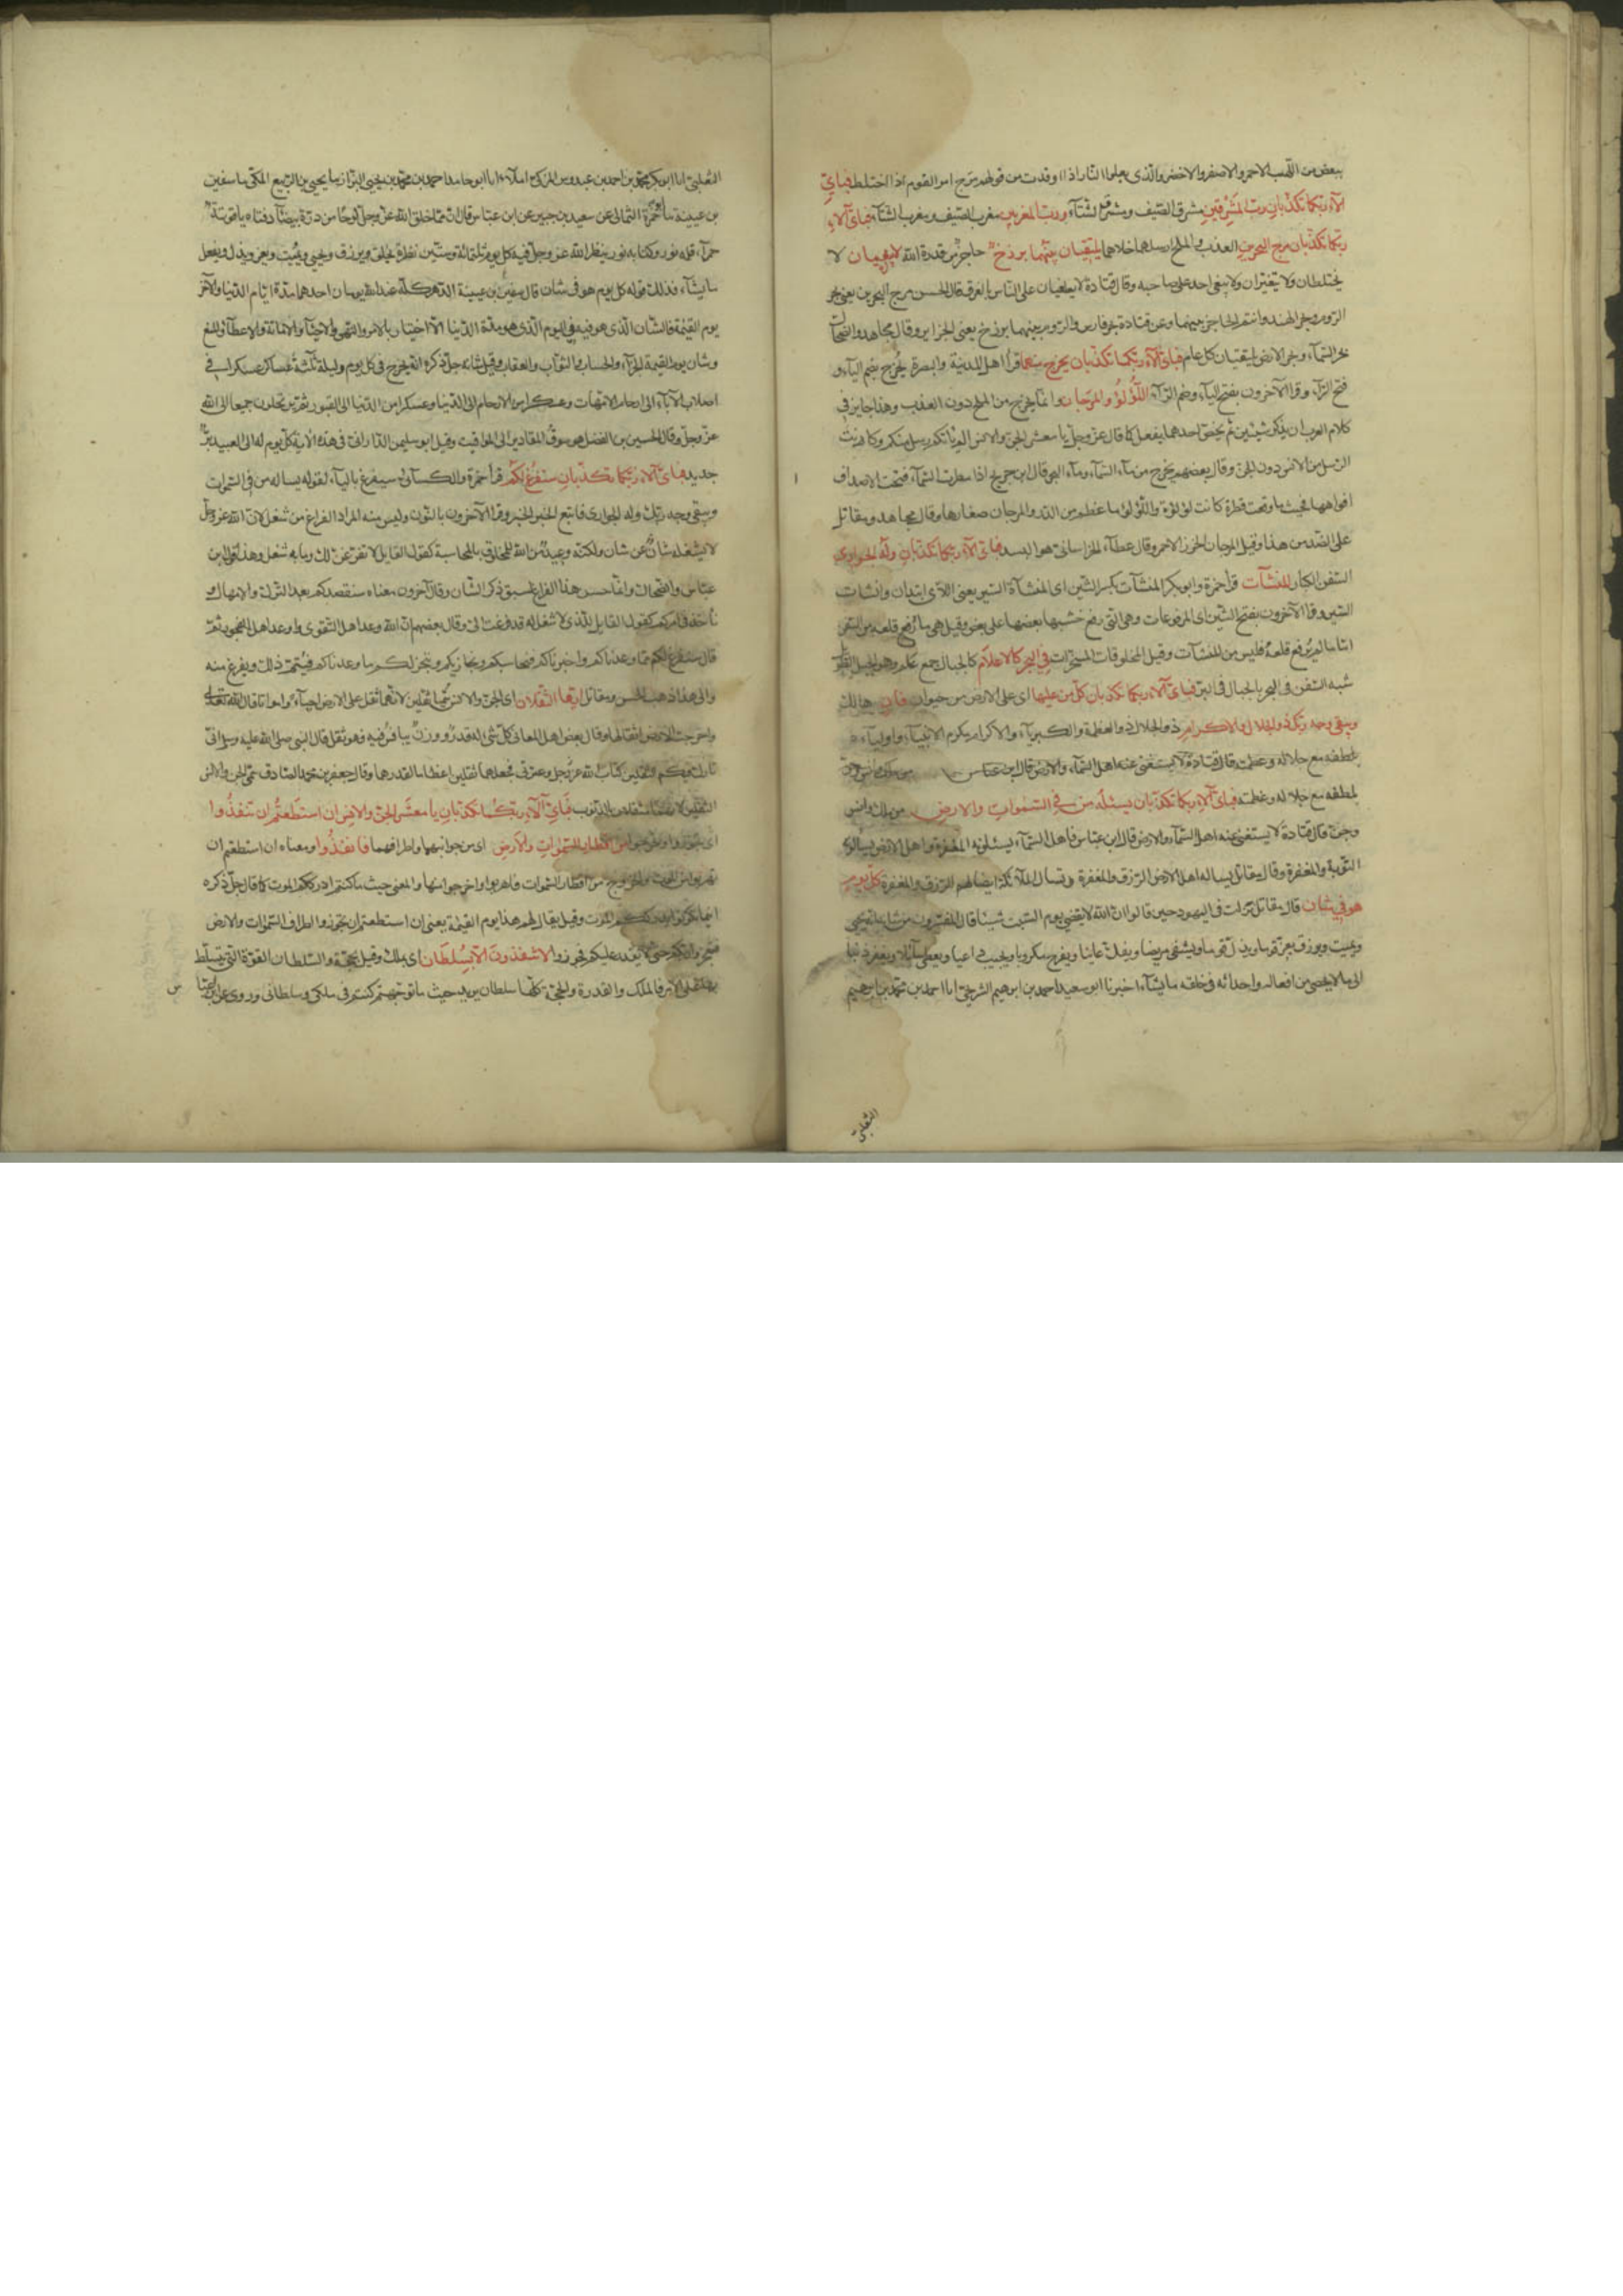 ببعض من اللهب الاحمر والاصفر والاخضر والذى يعلوا النار اذا اوقدت من قولهم مرج امر القوم اذا اختلط فباىّ
آلآء ربّكما تكذّبان ربّ المشرقين مشرق الصّيف ومشرق الشتآء وربّ المغربين مغرب الصّيف ومغرب الشتآء فباىّ آلآء
ربّكما تكذّبان مرج البحرين العذب والملح ارسلهما خلاهما يلتقيان بينهما برزخ حاجز من قدرة الله لايبغيان لا
يختلطان ولا يتغيّران ولايبغى احد على صاحبه وقال قتادة لايطغيان على الناس بالغرق قال الحسن مرج البحرين يعنى بحر
الرّوم وبحر الهند وانتم الحاجز بينهما وعن قتادة بحر فارس والرّوم بينهما برزخ يعنى الجزاير وقال مجاهد والضحّاك
بحر السّمآء وبحر الارض يلتقيان كل عام فباىّ آلآء ربّكما تكذّبان يخرج منهما قرأ اهل المدينة والبصرة يُخرج بضم اليآء و
فتح الرّآء وقرا الآخرون بفتح اليآء وضم الرّآء اللّؤلؤ والمرجان وانّما يخرج من الملح دون العذب وهذا جايز فى
كلام العرب ان يذكر شيئين ثم يخصّ احدهما بفعل كما قال عزّ وجلّ يا معشر الجنّ والانس الم ياتكم رسل منكم وكانت
الرّسل من الانس دون الجنّ وقال بعضهم يخرج من مآء السّمآء ومآء البحر قال ابن جريج اذا مطرت السّمآء فتحت الاصداف
افواهها فحيث ما وقعت قطرة كانت لؤلؤة واللّؤلؤ ما عظم من الدّر والمرجان صغارها وقال مجاهد ومقاتل
على الضّد من هذا وقيل المرجان الخرز الاحمر وقال عطآء الخراسانى هو البسد فباىّ آلآء ربّكما تكذّبان وله الجوارى
السّفن الكبار المنشآت قرأ حمزة وابو بكر المنشآت بكسر الشّين اى المنشآة السّير يعنى اللّاتى ابتدان وانشات
السّير وقرا الآخرون بفتح الشّين اى المرفوعات وهى الّتى رفع خشبها بعضها على بعض وقيل هى ما رفع قلعه من السّفن
امّا مالم يُرفع قلعه فليس من المنشآت وقيل المخلوقات المسخّرات فى البحر كالاعلام كالجبال جمع علم وهو الجبل الطّويل
شبه السّفن فى البحر بالجبال فى البرّ فباىّ آلآء ربّكما تكذّبان كلّ من عليها اى على الارض من حيوان فانٍ هالك
ويبقى وجه ربّك ذو الجلال والاكرام ذو الجلال ذو العظمة والكبريآء والاكرام يكرم الانبيآء واوليآءه
بلطفه مع جلاله وعظمته قال قتادة لا يستغنى عنه اهل السّمآء والارض قال ابن عبّاس
بلطفه مع جلاله وعظمته فباىّ آلآء ربّكما تكذّبان يسئله من فى السّموات والارض من ملك وانس
وجنّ قال قتادة لا يستغنى عنه اهل السّمآء والارض قال ابن عبّاس فاهل السّمآء يسئلونه المغفرة واهل الارض يسالونه
التّوبة والمغفرة وقال مقاتل يساله اهل الارض الرّزق والمغفرة وتسال الملآئكة ايضا لهم الرّزق والمغفرة كلّ يومٍ
هو فى شان قال مقاتل نزلت فى اليهود حين قالوا انّ الله لا يقضى يوم السّبت شيئا قال المفسّرون من شانه يحيى
ويميت ويرزق ويعزّ قوما ويذلّ قوما ويشفى مريضا ويفكّ عانيا ويفرج مكروبا ويجيب داعيا ويعطى سآئلا ويغفر ذنبا
الى ما لا يحصى من افعاله واحداثه فى خلقه ما يشآء اخبرنا ابو سعيد احمد بن ابرهيم الشّريحى انا احمد بن محمّد بن ابرهيم
الثّعلبىّ
الثّعلبىّ انا ابو بكر محمّد بن احمد بن عبدوس المزكّى املآء انا ابو حامد احمد بن محمّد بن يحيى البزّاز نا يحيى بن الرّبيع المكّى نا سفين
بن عيينة نا ابو حمزة الثمالى عن سعيد بن جبير عن ابن عباس قال انّ ممّا خلق الله عزّ وجلّ لوحًا من درّة بيضآء دفتاه ياقوتة
حمرآء قلمه نور وكتابه نور ينظر الله عز وجلّ فيه كل يوم ثلثمائة وستّين نظرة يخلق ويرزق ويحيى ويُميت ويعز ويذل ويفعل
ما يشآء فذلك قوله كل يوم هو فى شان قال سفين بن عيينة الدّهر كلّه عند الله يومان احدهما مدّة ايّام الدّنيا والآخر
يوم القيمة فالشّان الّذى هو فيه فى اليوم الّذى هو مدّة الدّنيا الاختبار بالامر والنّهى والاحيآء والاماتة والاعطآء والمنع
وشان يوم القيمة الجزآء والحساب والثّواب والعقاب وقيل شانه جلّ ذكره انه يخرج فى كل يوم وليلة ثلثة عساكر عسكرا من
اصلاب الآبآء الى ارحام الامّهات وعسكرا من الارحام الى الدّنيا وعسكرا من الدّنيا الى القبور ثم يرتحلون جميعا الى الله
عزّ وجلّ وقال الحسين بن الفضل هو سوق المقادير الى المواقيت وقيل ابو سليمن الدّارانى فى هذه الاية كلّ يوم له الى العبيد برّ
جديد فباىّ آلآء ربّكما تكذّبان سنفرغ لكم قرأ حمزة والكسآئى سيفرغ باليآء لقوله يساله من فى السّموات
ويبقى وجه ربّك وله الجوارى فاتبع الخبر الخبر وقرا الآخرون بالنّون وليس منه المراد الفراغ من شغل لانّ الله عزّ وجلّ
لا يشغله شان عن شان ولكنّه وعيد من الله للخلق بالمحاسبة كقول القايل لاتفرّغنّ لك وما به شغل وهذا قول ابن
عبّاس والضحّاك وانّما حسن هذا الفراغ لسبق ذكر الشّان وقال آخرون معناه سنقصدكم بعد التّرك والامهال و
ناخذ فى امركم كقول القايل للّذى لا شغل له قد فرغت لى وقال بعضهم انّ الله وعد اهل التّقوى واوعد اهل الفجور ثمّ
قال سنفرغ لكم ممّا وعدناكم واخبرناكم فنحاسبكم ونجازيكم وننجز لكم ما وعدناكم فيتمّ ذلك ويفرغ منه
والى هذا ذهب الحسن ومقاتل ايّها الثّقلان اى الجنّ والانس سُمّيا ثقلين لانّهما ثقل على الارض احيآءً وامواتا قال الله تعالى
واخرجت الارض اثقالها وقال بعض اهل المعانى كلّ شى له قدر ووزن ينافس فيه فهو ثقل قال النبى صلى الله عليه وسلم انّى
تارك فيكم الثّقلين كتاب الله عزّ وجل وعترتى فجعلهما ثقلين اعظاما لقدرهما وقال جعفر بن محمد الصّادق سمّى الجنّ والانس
الثّقلين لانّهما مثقلان بالذّنوب فباىّ آلآء ربّكما تكذّبان يا معشر الجنّ والانس ان استطعتم ان تنفذوا
اى تجوزوا وتخرجوا من اقطار السّموات والارض اى من جوانبهما واطرافهما فانفذوا ومعناه ان استطعتم ان
تهربوا من الموت بالخروج من اقطار السّموات فاهربوا واخرجوا منها والمعنى حيث ما كنتم ادرككم الموت كما قال جلّ ذكره
اينما تكونوا يدرككم الموت وقيل يقال لهم هذا يوم القيمة يعنى ان استطعتم ان تجوزوا اطراف السّموات والارض
فتعجزوا ربّكم حتّى لا يقدر عليكم فجوزوا لا تنفذون الّا بسلطان اى بملك وقيل بحجّة والسّلطان القوّة الّتى يتسلّط
بها على الامر فالملك والقدرة والحجّة كلّها سلطان يريد حيث ما توجّهتم كنتم فى ملكى وسلطانى وروى عن ابن عبّاس